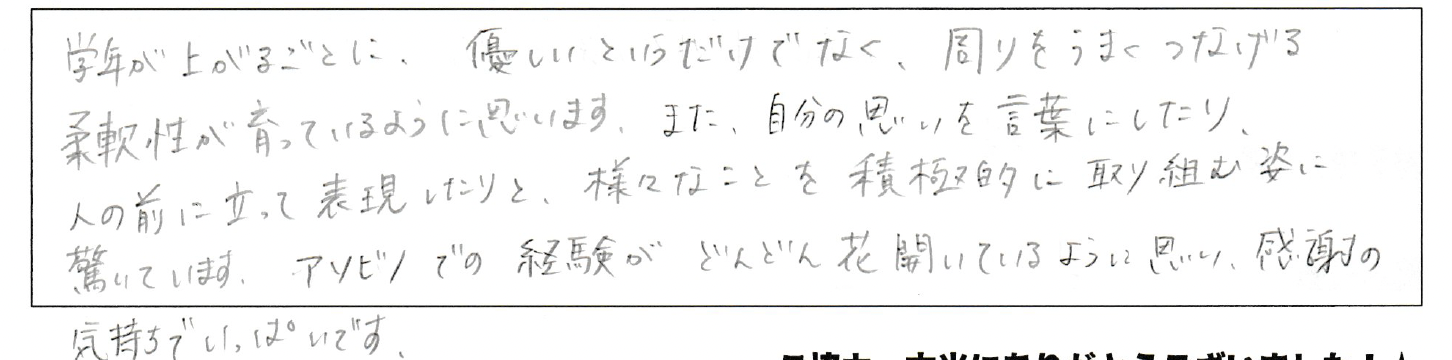 学年が上がるごとに、優しいというだけでなく、周りをうまくつなげる
柔軟性が育っているように思います。また、自分の思いを言葉にしたり、
人の前に立って表現したりと、様々なことを積極的に取り組む姿に
驚いています。アソビノでの経験がどんどん花開いているように思い、感謝の
気持ちでいっぱいです。